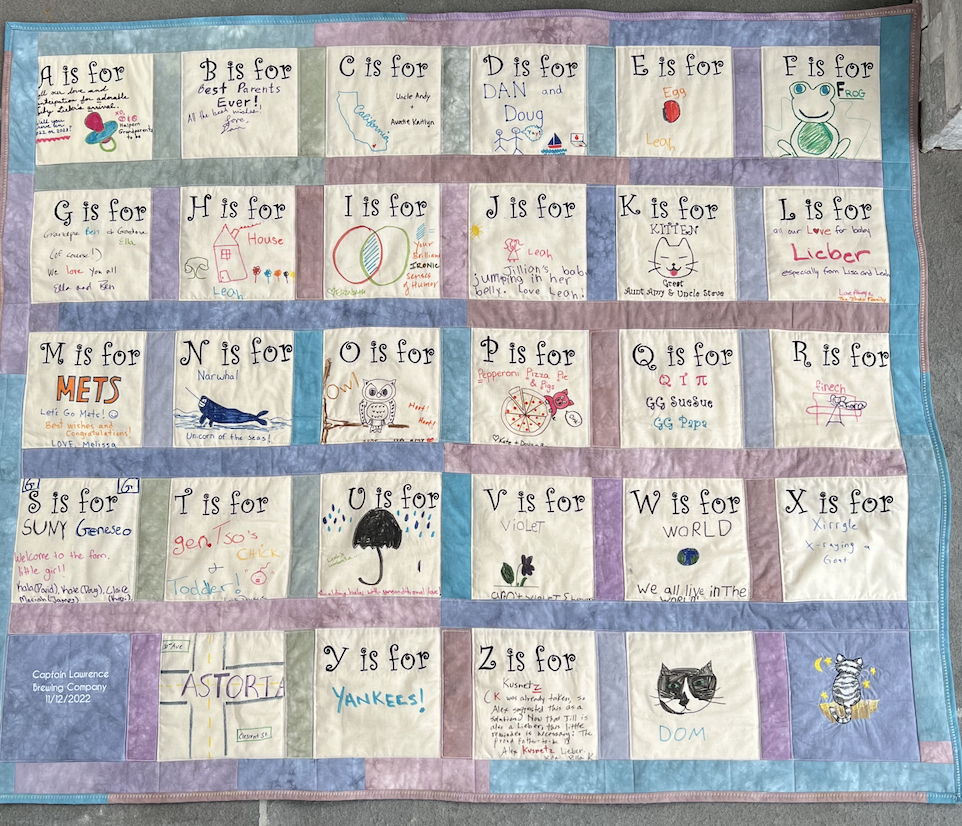 A is for
all our love and
anticipation for adorable
baby Lieber's arrival.
Halpern
Grandparents
to be
B is for
Best Parents
Ever!
All the best wishes!
Love,
C is for
California
Uncle Andy
+
Auntie Kaitlyn
D is for
DAN and
Doug
Yay!
E is for
Egg
Leah
F is for
FROG
G is for
Grandpa Ben & Grandma
Ella
(of course!)
We love you all
Ella and Ben
H is for
House
Leah
I is for
Your
Brilliant
IRONIC
Senses
of Humor
J is for
Leah
Jillian's baby
jumping in her
belly. Love Leah.
K is for
KITTEN
Great
Aunt Amy & Uncle Steve
L is for
all our Love for baby
Lieber
especially from Lisa and Leah
M is for
METS
Let's Go Mets!
Best wishes and
Congratulations!
LOVE, Melissa
N is for
Narwhal
Unicorn of the seas!
O is for
Owl
Hoot!
Hoot!
P is for
Pepperoni Pizza Pie
& Pigs
Q is for
Q T π
GG SueSue
GG Papa
R is for
S is for
G
G
SUNY Geneseo
Welcome to the fam,
little girl!
T is for
gen. Tso's
CHICK
Toddler!
U is for
V is for
VIOLET
W is for
WORLD
We all live in The
world
X is for
Xirrgle
X-raying a
Goat
Captain Lawrence
Brewing Company
11/12/2022
ASTORIA
Crescent St
Y is for
YANKEES!
Z is for
Kusnetz
(K was already taken, so
Alex suggested this as a
solution! Now that Jill is
also a Lieber, this little
reminder is necessary! The
proud father-to-be is
Alex Kusnetz Lieber.
DOM